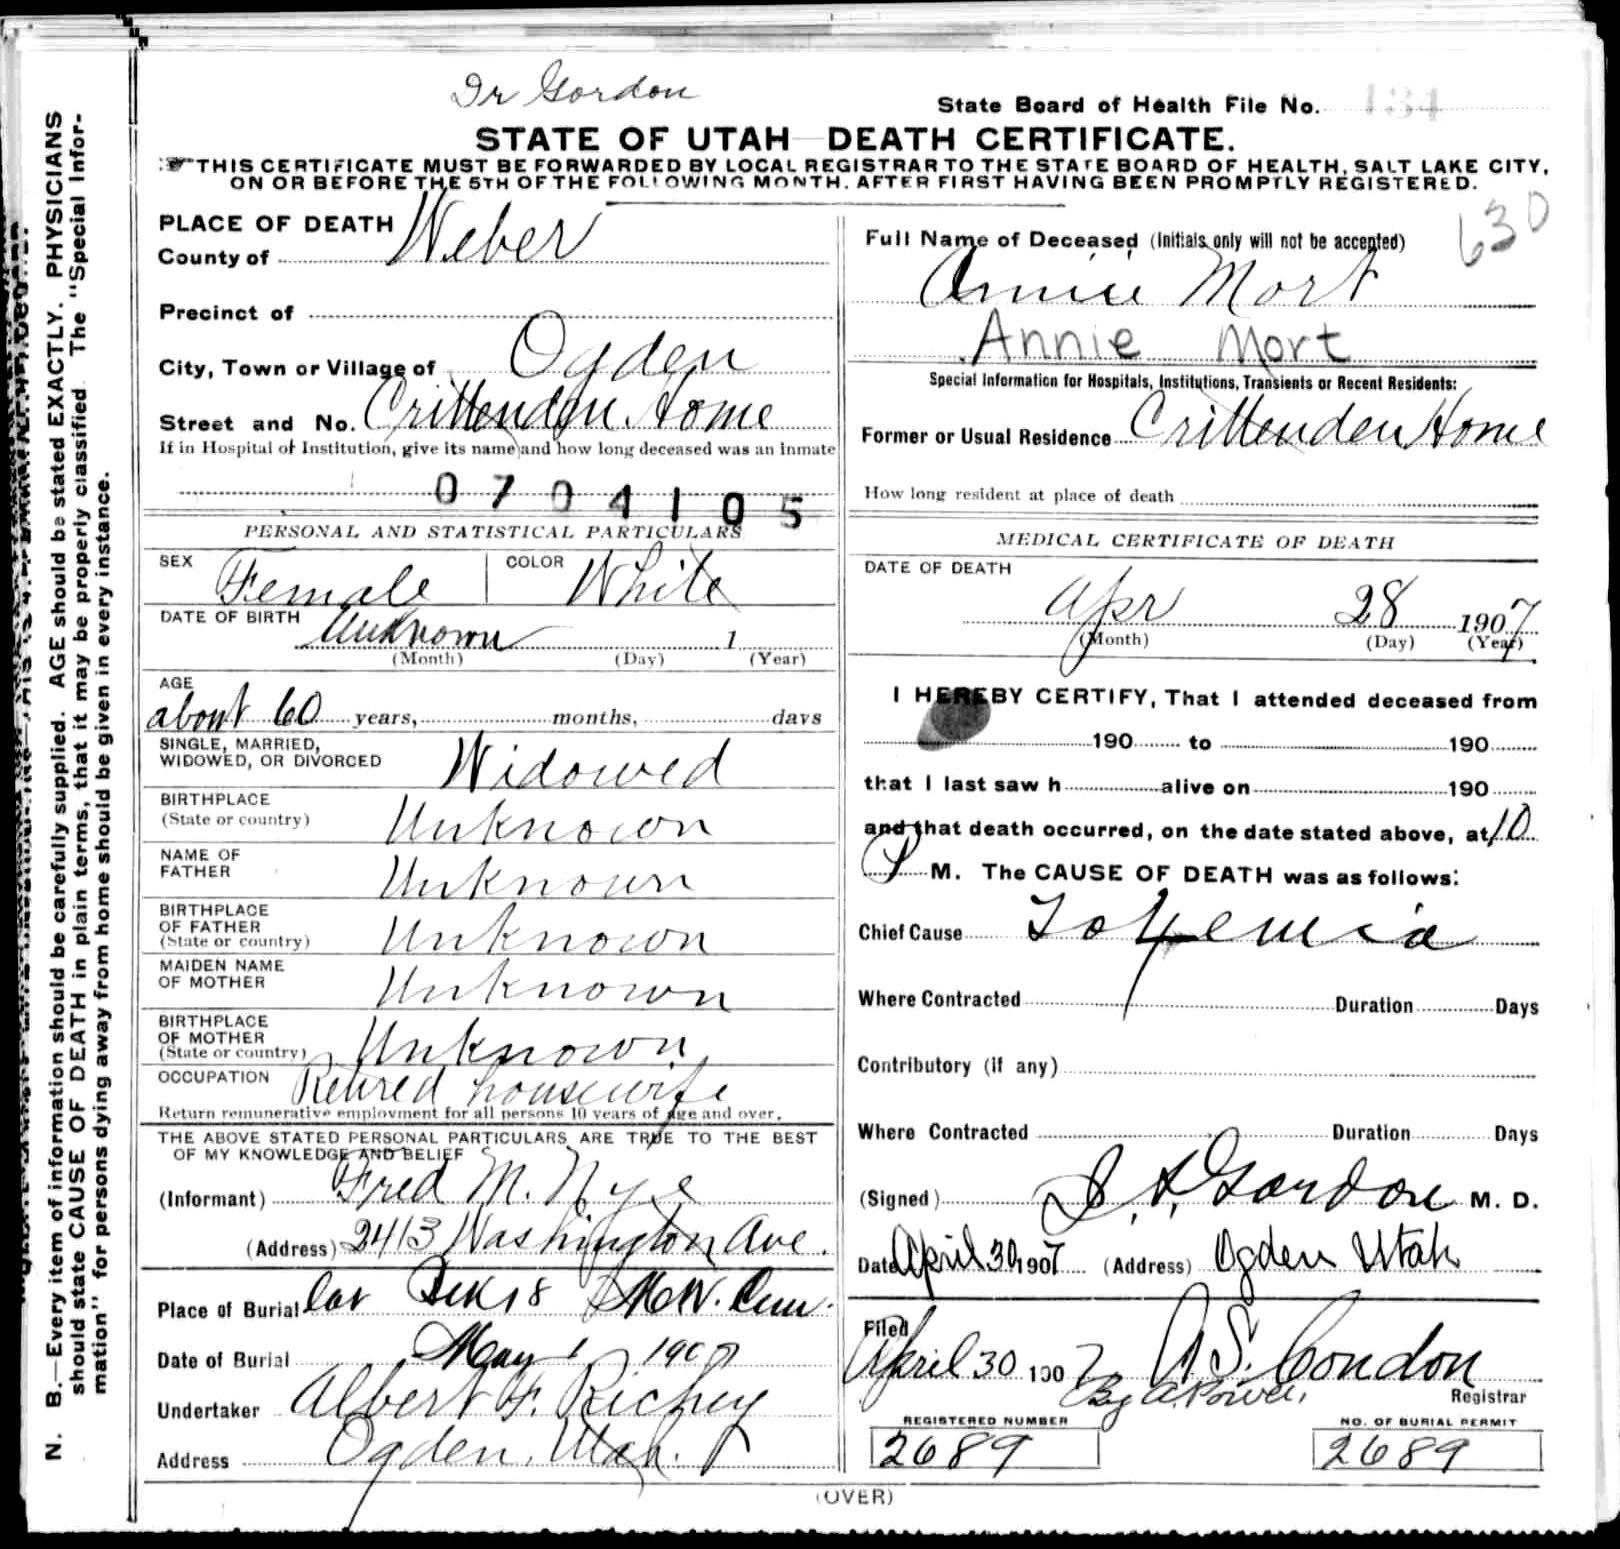 Dr Gordon
State Board of Health File No. 134
STATE OF UTAH DEATH CERTIFICATE.
THIS CERTIFICATE MUST BE FORWARDED BY LOCAL REGISTRAR TO THE STATE BOARD OF HEALTH, SALT LAKE CITY,
ON OR BEFORE THE 5TH OF THE FOLLOWING MONTH. AFTER FIRST HAVING BEEN PROMPTLY REGISTERED.
N. B.—Every item of information should be carefully supplied. AGE should be stated EXACTLY. PHYSICIANS
should state CAUSE OF DEATH in plain terms, that it may be properly classified. The "Special Infor-
mation" for persons dying away from home should be given in every instance.
PLACE OF DEATH
County of Weber
Precinct of
City, Town or Village of Ogden
Street and No. Crittenden Home
If in Hospital or Institution, give its name and how long deceased was an inmate
0704105
PERSONAL AND STATISTICAL PARTICULARS
SEX Female COLOR White
DATE OF BIRTH Unknown 1
(Month) (Day) (Year)
AGE
about 60 years, months, days
SINGLE, MARRIED,
WIDOWED, OR DIVORCED Widowed
BIRTHPLACE
(State or country) Unknown
NAME OF
FATHER Unknown
BIRTHPLACE
OF FATHER
(State or country) Unknown
MAIDEN NAME
OF MOTHER Unknown
BIRTHPLACE
OF MOTHER
(State or country) Unknown
OCCUPATION Retired housewife
Return remunerative employment for all persons 10 years of age and over.
THE ABOVE STATED PERSONAL PARTICULARS ARE TRUE TO THE BEST
OF MY KNOWLEDGE AND BELIEF
(Informant) Fred M. Nye
(Address) 2413 Washington Ave.
Place of Burial
Date of Burial May 1 1907
Undertaker Albert F. Richey
Address Ogden, Utah.
630
Full Name of Deceased (Initials only will not be accepted)
Annie Mort
Annie Mort
Special Information for Hospitals, Institutions, Transients or Recent Residents:
Former or Usual Residence Crittenden Home
How long resident at place of death
MEDICAL CERTIFICATE OF DEATH
DATE OF DEATH
Apr 28 1907
(Month) (Day) (Year)
I HEREBY CERTIFY, That I attended deceased from
190 to 190
that I last saw h alive on 190
and that death occurred, on the date stated above, at 10
P M. The CAUSE OF DEATH was as follows:
Chief Cause Toxemia
Where Contracted Duration Days
Contributory (if any)
Where Contracted Duration Days
(Signed) Gordon M. D.
Date April 30 1907 (Address) Ogden Utah
Filed
April 30 1907 A. S. Condon
By A. Powell
Registrar
REGISTERED NUMBER
2689
NO. OF BURIAL PERMIT
2689
(OVER)